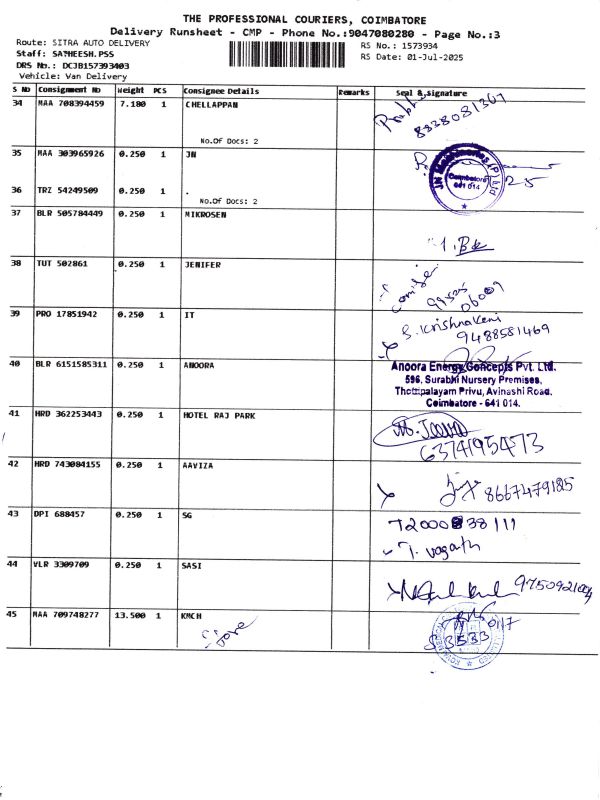 THE PROFESSIONAL COURIERS, COIMBATORE
Delivery Runsheet - CMP - Phone No.:9047080280 - Page No.:3
Route: SITRA AUTO DELIVERY
RS No.: 1573934
Staff: SATHEESH.PSS
RS Date: 01-Jul-2025
DRS No.: DCJB157393403
Vehicle: Van Delivery
S No Consignment No Weight PCS Consignee Details Remarks Seal & signature
34 MAA 708394459 7.180 1 CHELLAPPAN
8838081367
No.Of Docs: 2
35 MAA 303965926 0.250 1 JN
JN Machineries (P) Ltd
Coimbatore
641 014
25
36 TRZ 54249509 0.250 1 .
No.Of Docs: 2
37 BLR 505784449 0.250 1 MIKROSEN
38 TUT 502861 0.250 1 JENIFER
39 PRO 17851942 0.250 1 IT
S. Krishnakeni
9488581469
40 BLR 6151585311 0.250 1 ANOORA
Anoora Energy Concepts Pvt. Ltd.
596, Surabhi Nursery Premises,
Thottipalayam Privu, Avinashi Road,
Coimbatore - 641 014.
41 HRD 362253443 0.250 1 HOTEL RAJ PARK
6374195473
42 HRD 743084155 0.250 1 AAVIZA
8667479185
43 DPI 688457 0.250 1 SG
T. vagath
44 VLR 3309709 0.250 1 SASI
45 MAA 709748277 13.500 1 KMCH
Store